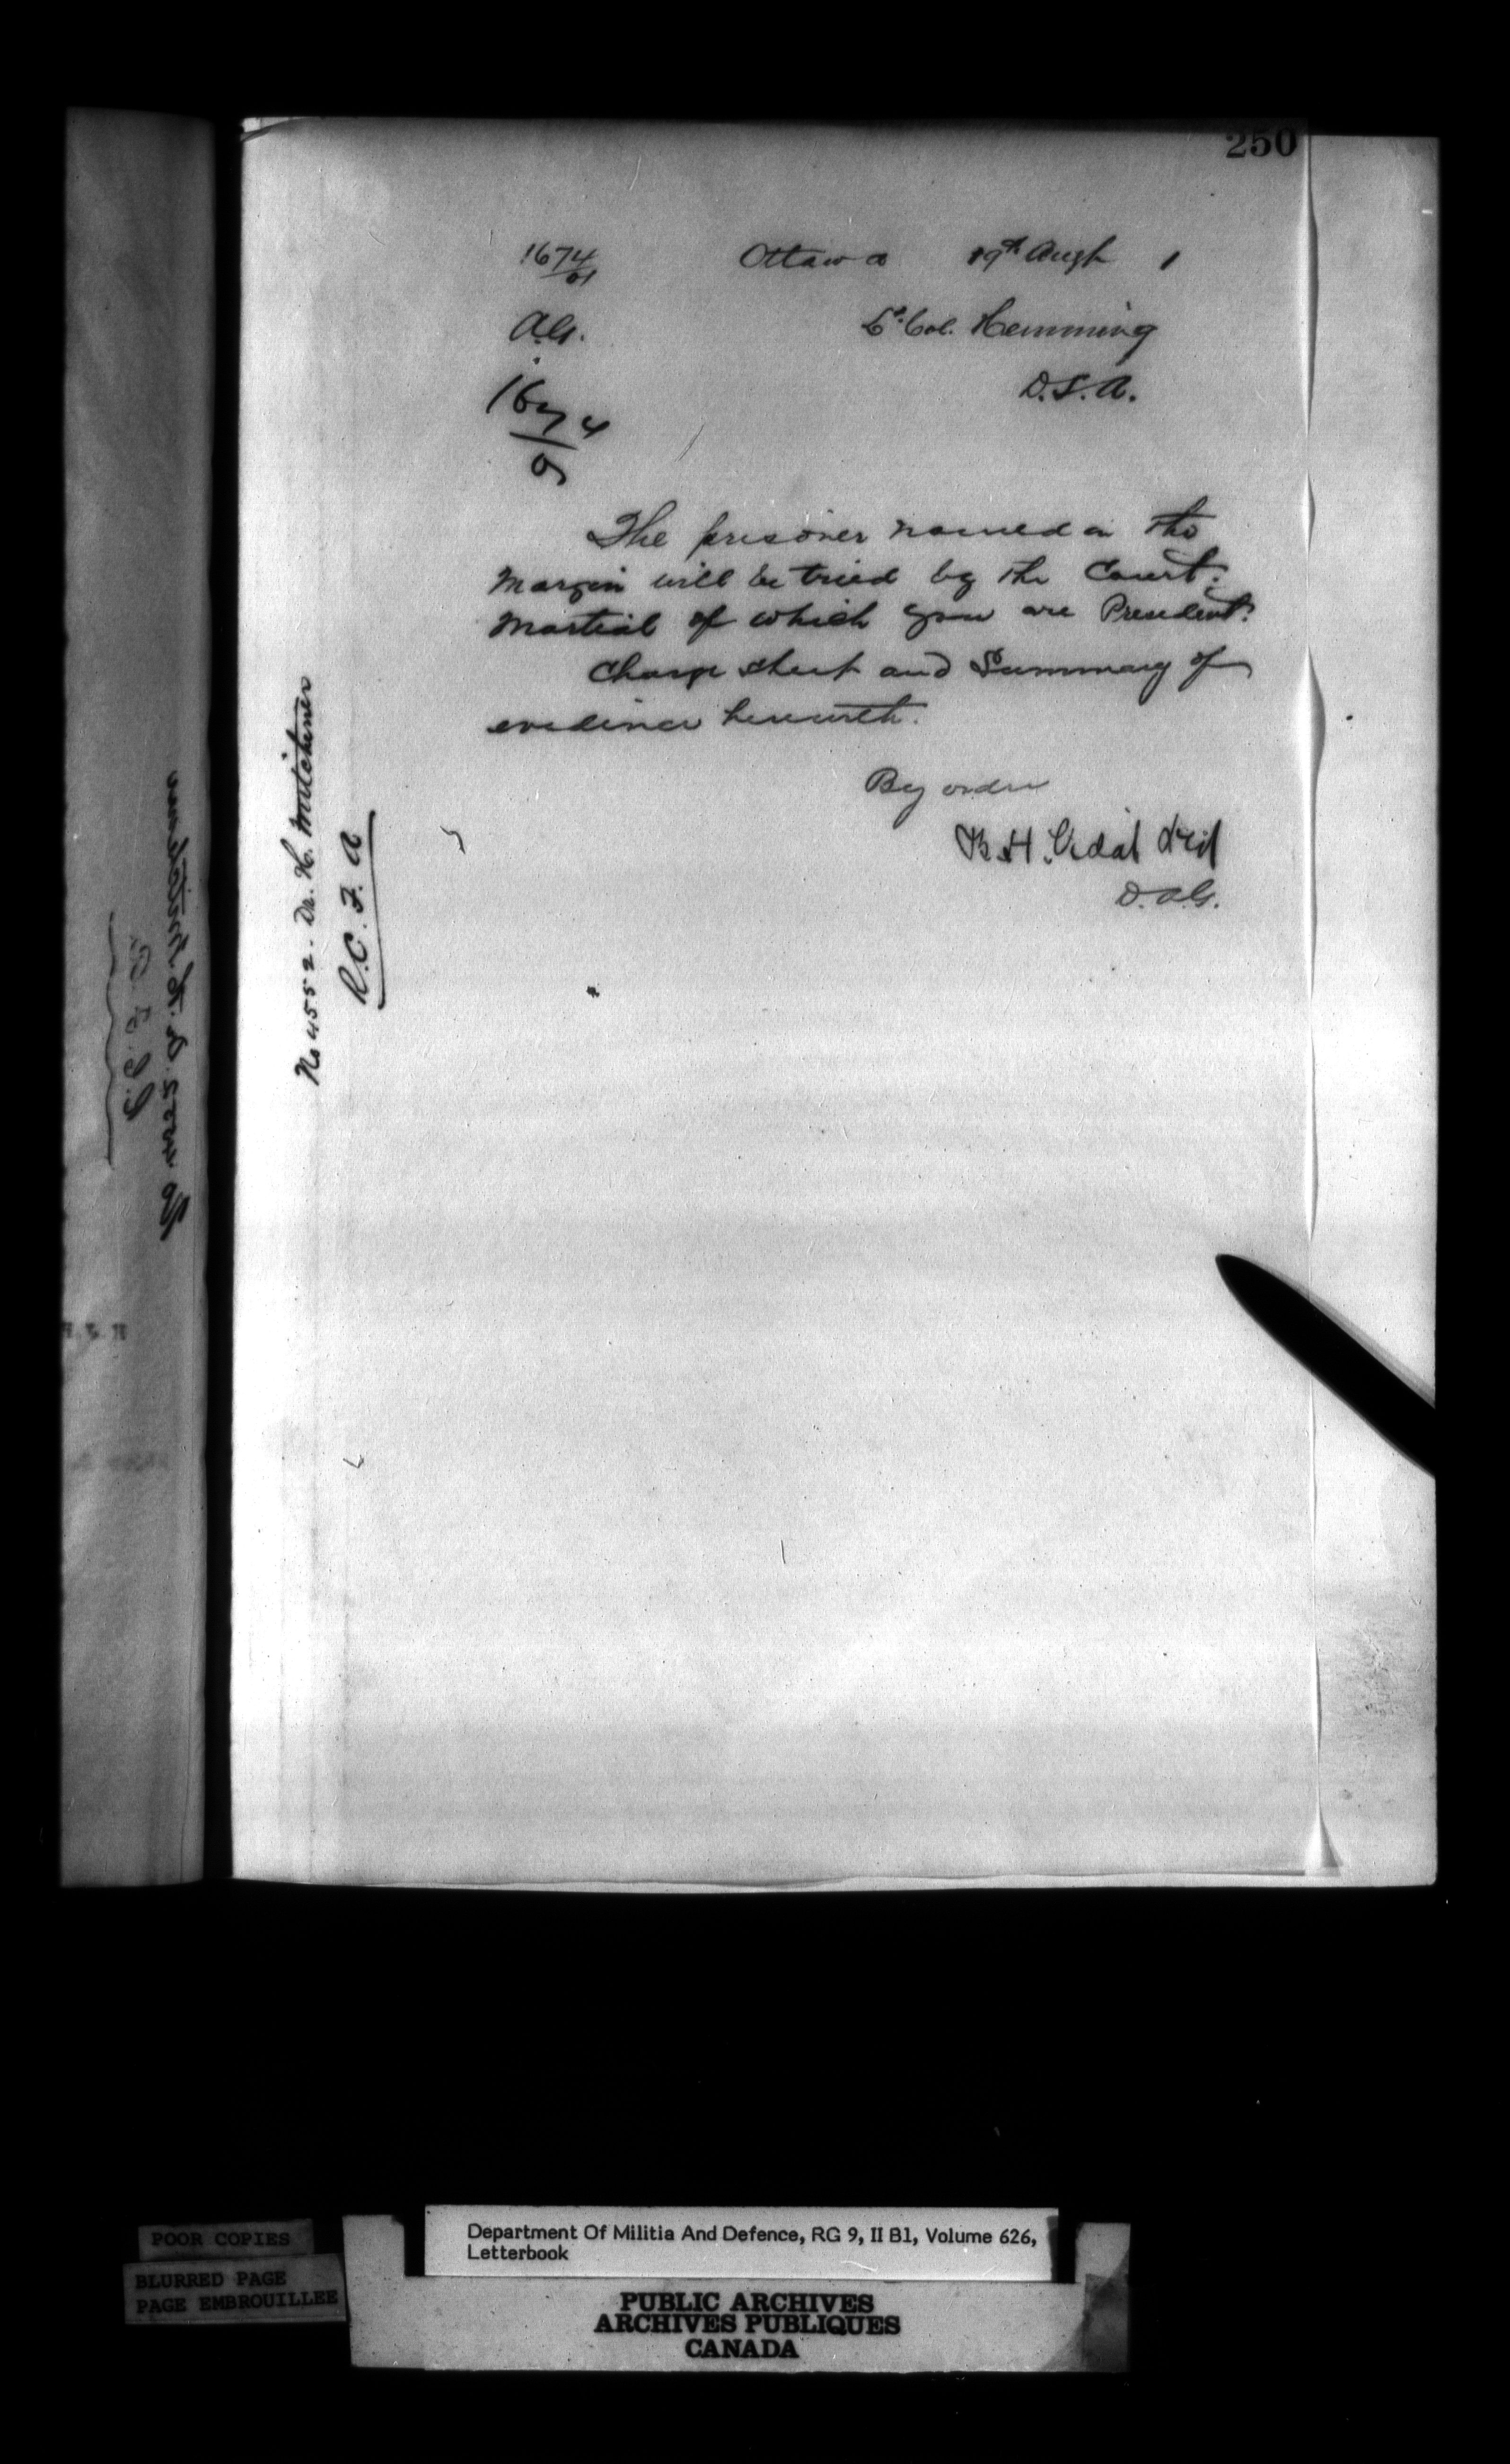 250
1674/01 Ottawa 19th Augt 1
A.G. Lt. Col. Hemming
D.S.A.
1674/01
The prisoner named in the
Margin will be tried by the Court-
Martial of which you are President.
Charge sheet and Summary of
evidence herewith.
By order
B.H. Vidal
D.A.G.
No 4552. Dr. H. Mitchener
R.C.F.A
POOR COPIES
BLURRED PAGE
PAGE EMBROUILLEE
Department Of Militia And Defence, RG 9, II B1, Volume 626,
Letterbook
PUBLIC ARCHIVES
ARCHIVES PUBLIQUES
CANADA